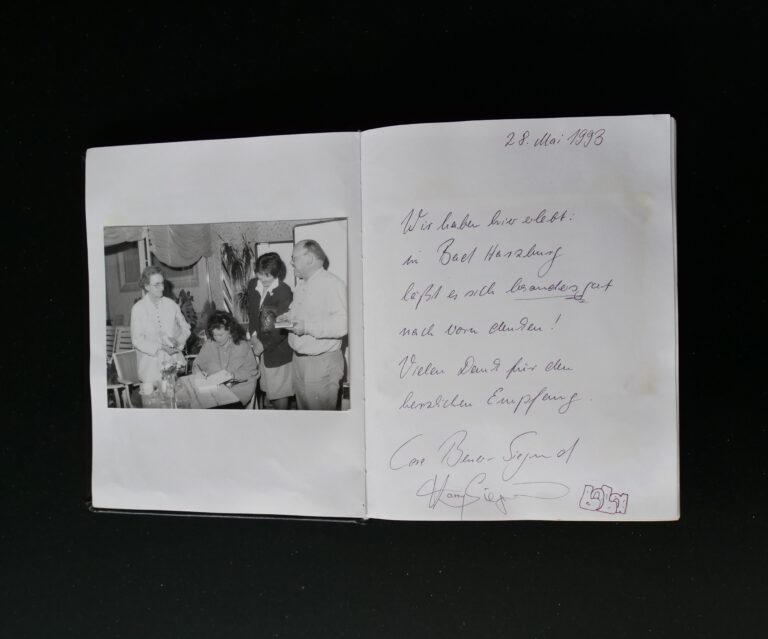 28. Mai 1993
Wir haben hier erlebt:
in Bad Harzburg
läßt es sich besonders gut
nach vorn denken!
Vielen Dank für den
herzlichen Empfang.